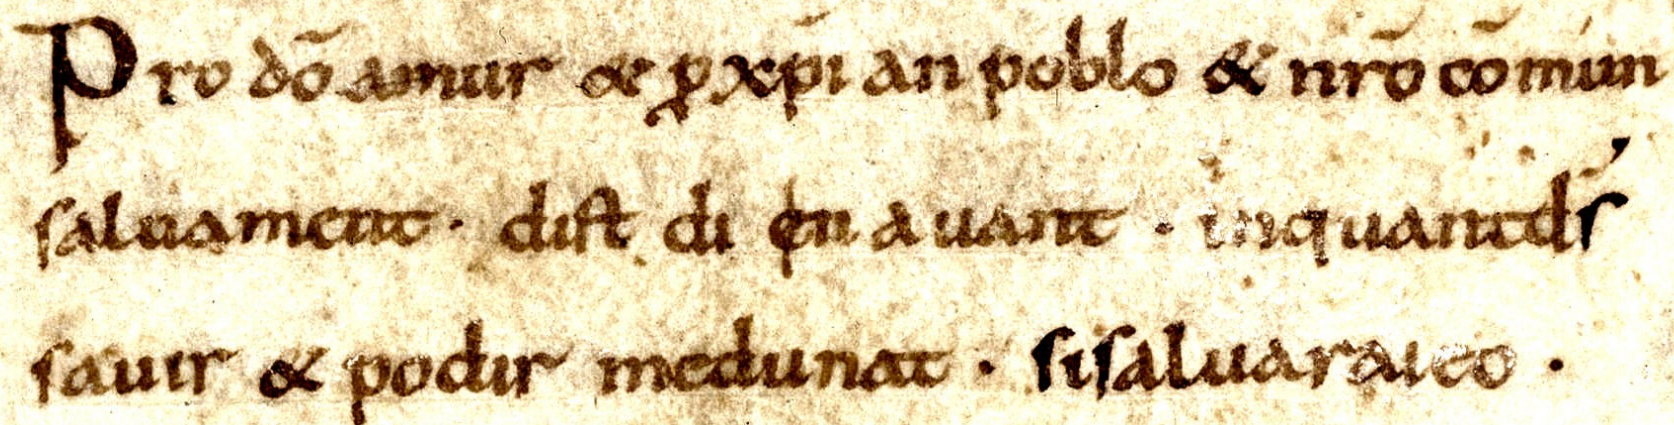 Pro dō amur & ꝑ xp̄i an poblo & nr̄o cōmun
saluament · dist di en auant · inquantd̄s
sauir & podir medunat · sisaluaraieo ·